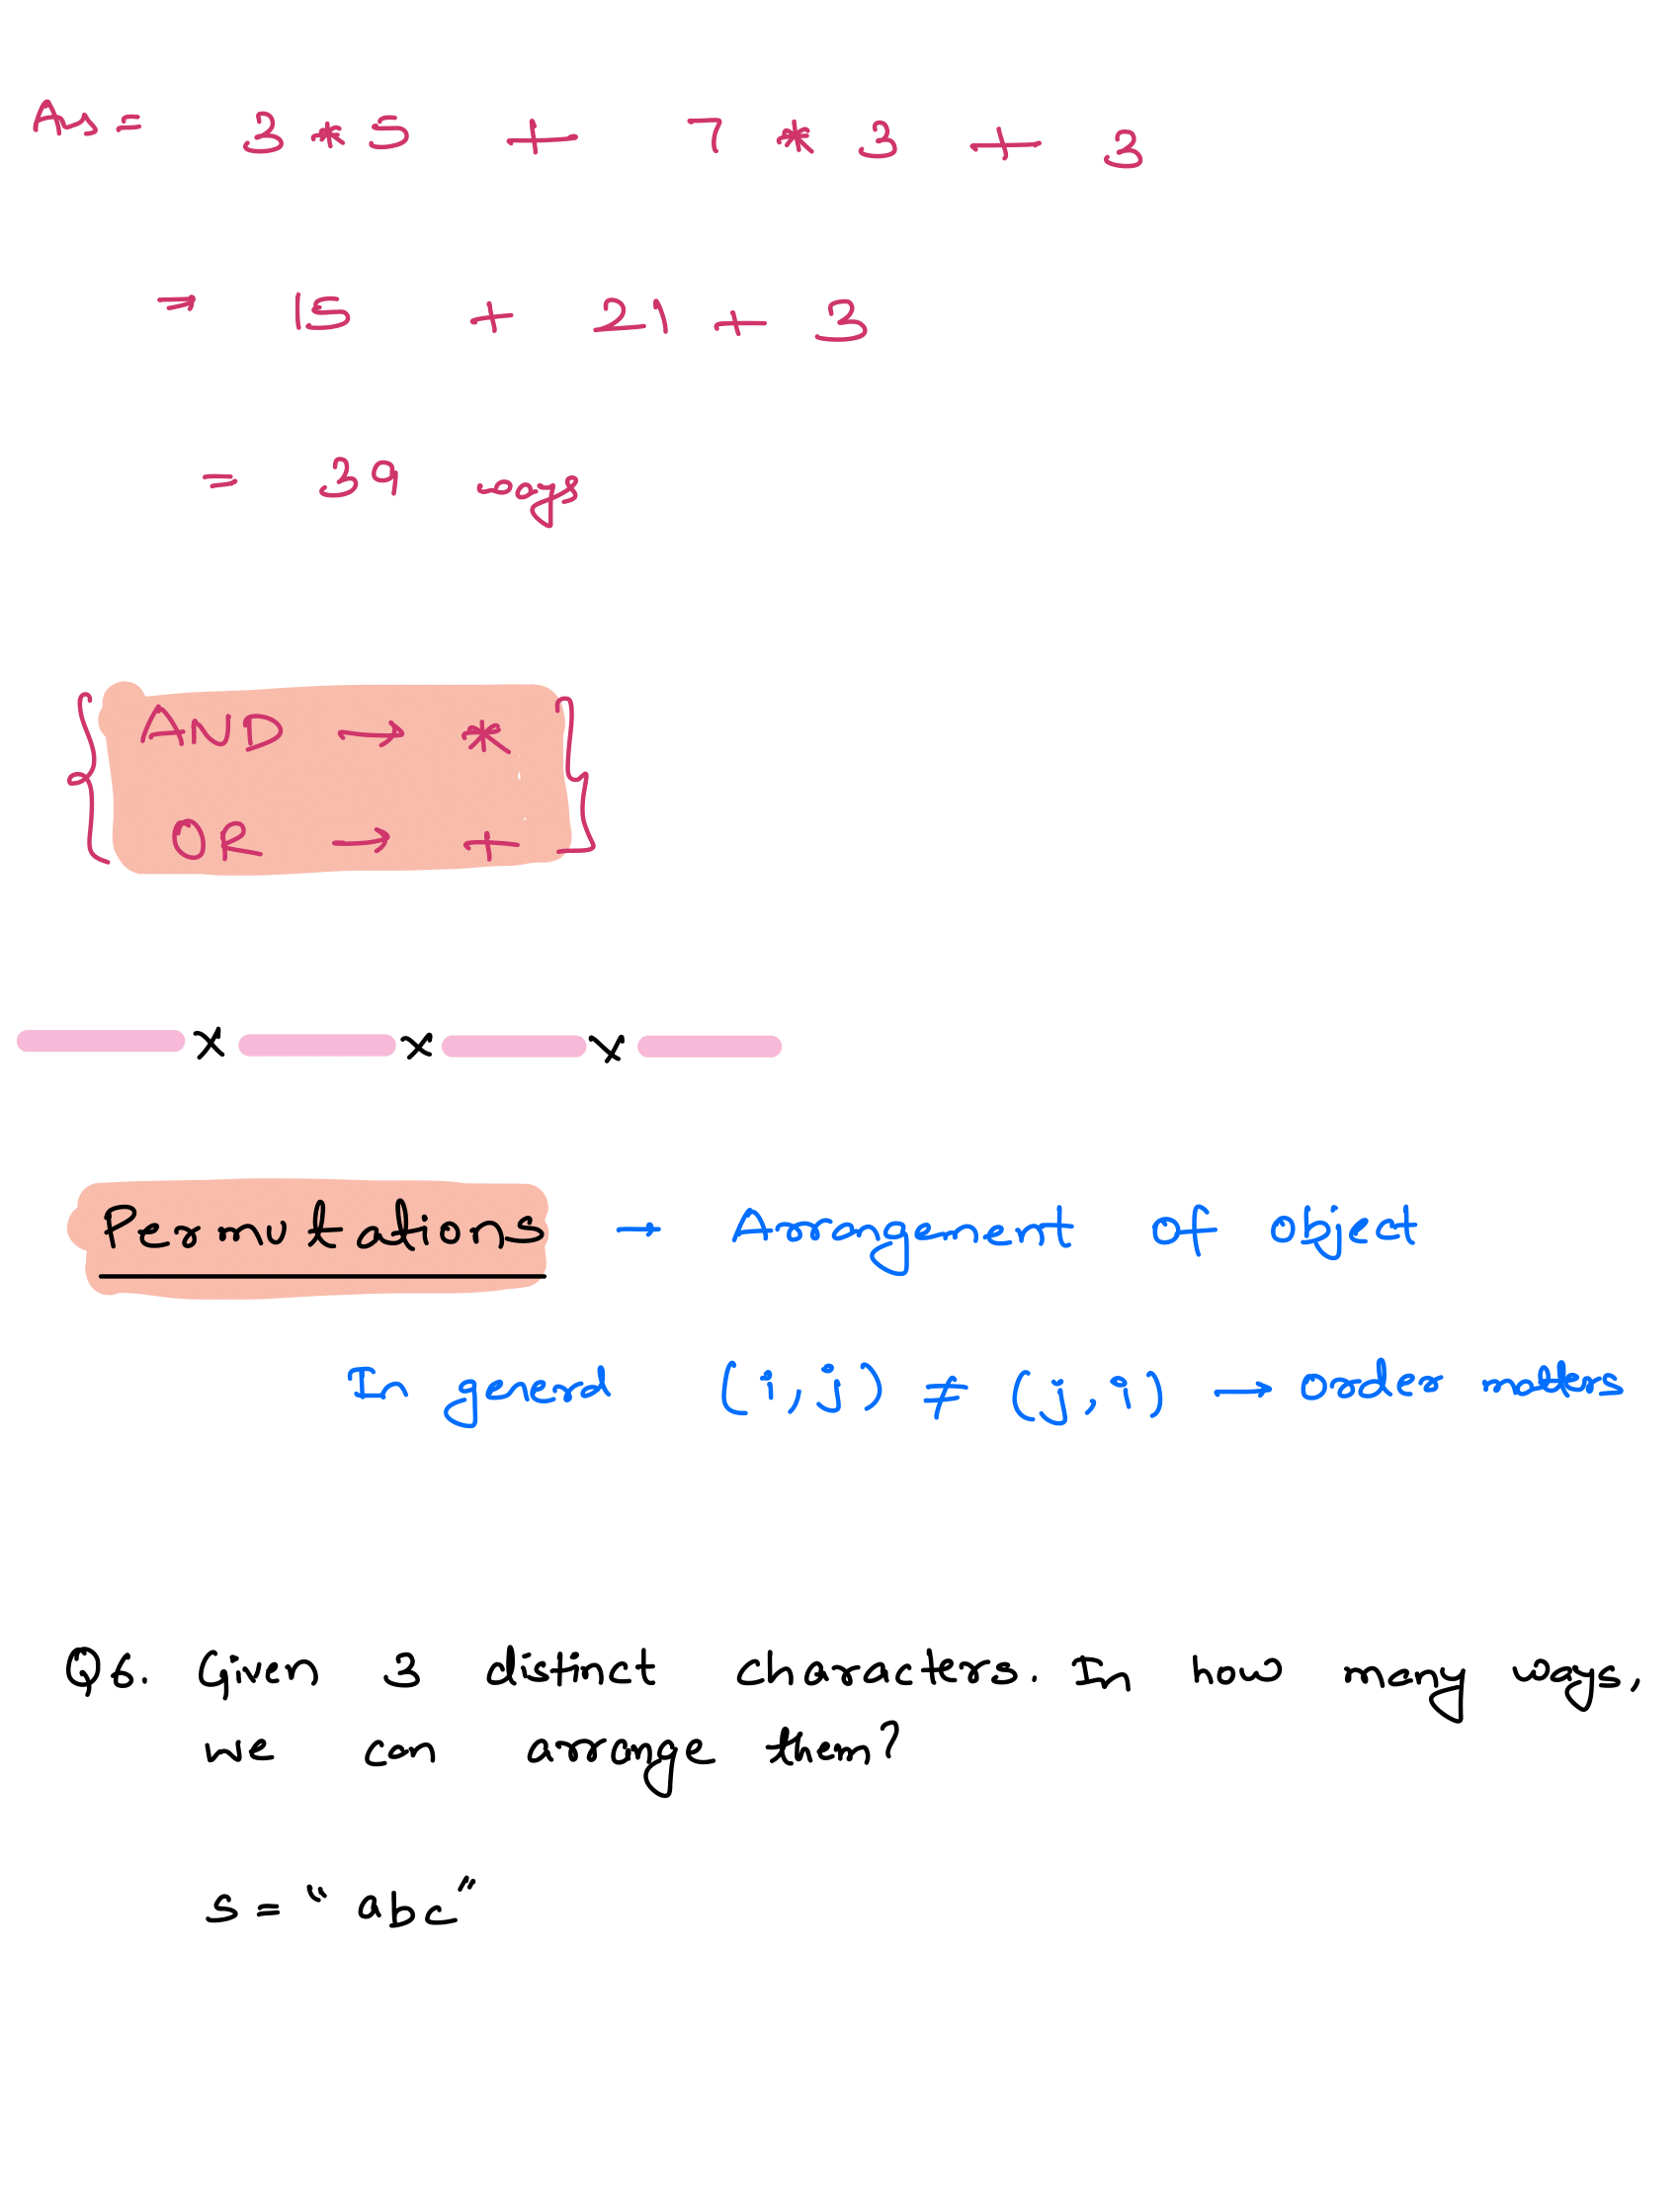 Ans = 3 * 5 + 7 * 3 + 3
⇒ 15 + 21 + 3
= 39 ways
{ AND → *
OR → + }
x x x
Permutations → Arrangement of object
In general (i, j) ≠ (j, i) → order matters
Q6. Given 3 distinct characters. In how many ways,
we can arrange them?
s = "abc"